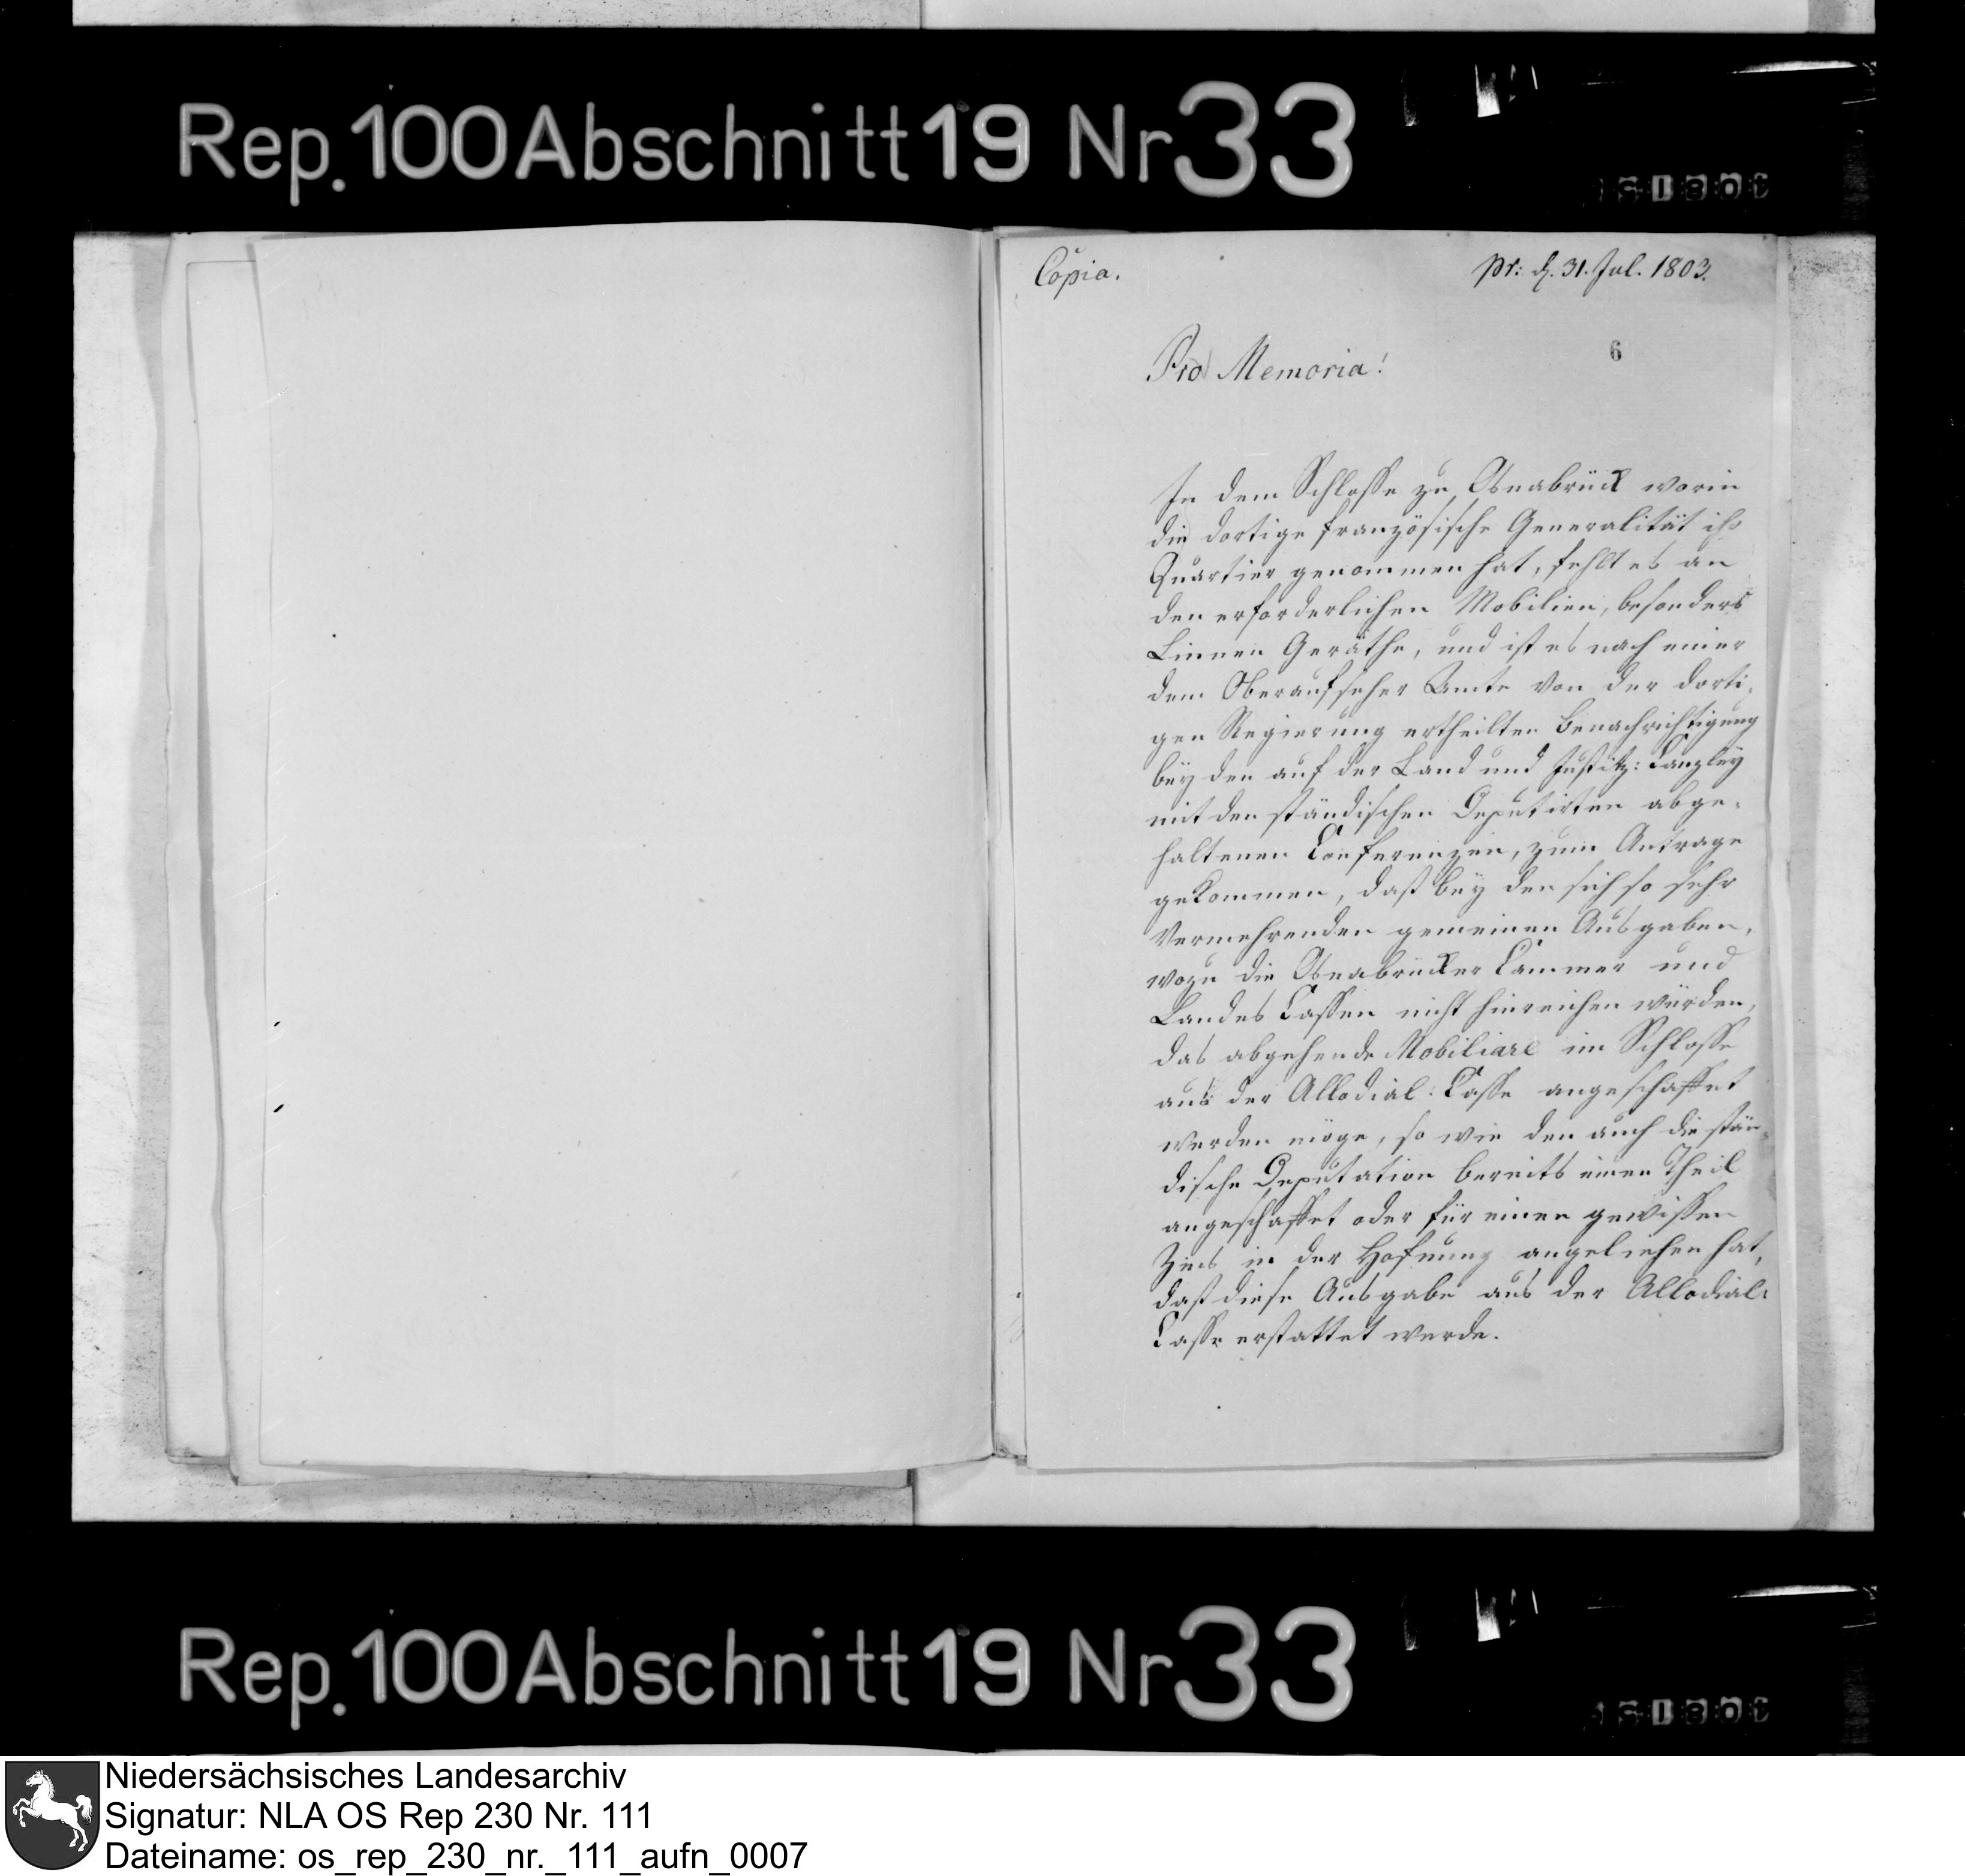 Rep.100Abschnitt19 Nr33
Copia.
pr: d. 31. Jul. 1803.
6
Pro Memoria!
In dem Schlosse zu Osnabrück worin
die dortige französische Generalität ihr
Quartier genommen hat, fehlt es an
den erforderlichen Mobilien, besonders
Linnen Geräthe, und ist es nach einer
dem Oberaufseher Amte von der dorti-
gen Regierung ertheilten Benachrichtigung
bey den auf der Land und Justitz: Canzley
mit den ständischen Deputirten abge-
haltenen Conferenzen, zum Antrage
gekommen, daß bey den sich so sehr
vermehrenden gemeinen Ausgaben,
wozu die Osnabrücker Cammer und
Landes Cassen nicht hinreichen würden,
das abgehende Mobiliare im Schlosse
aus der Allodial: Casse angeschaffet
werden möge, so wie den auch die stän-
dische Deputation bereits einen Theil
angeschaffet oder für einen gewissen
Zins in der Hofnung angeliehen hat,
daß diese Ausgabe aus der Allodial:
Casse erstattet werde.
Rep.100Abschnitt19 Nr33
Niedersächsisches Landesarchiv
Signatur: NLA OS Rep 230 Nr. 111
Dateiname: os_rep_230_nr._111_aufn_0007